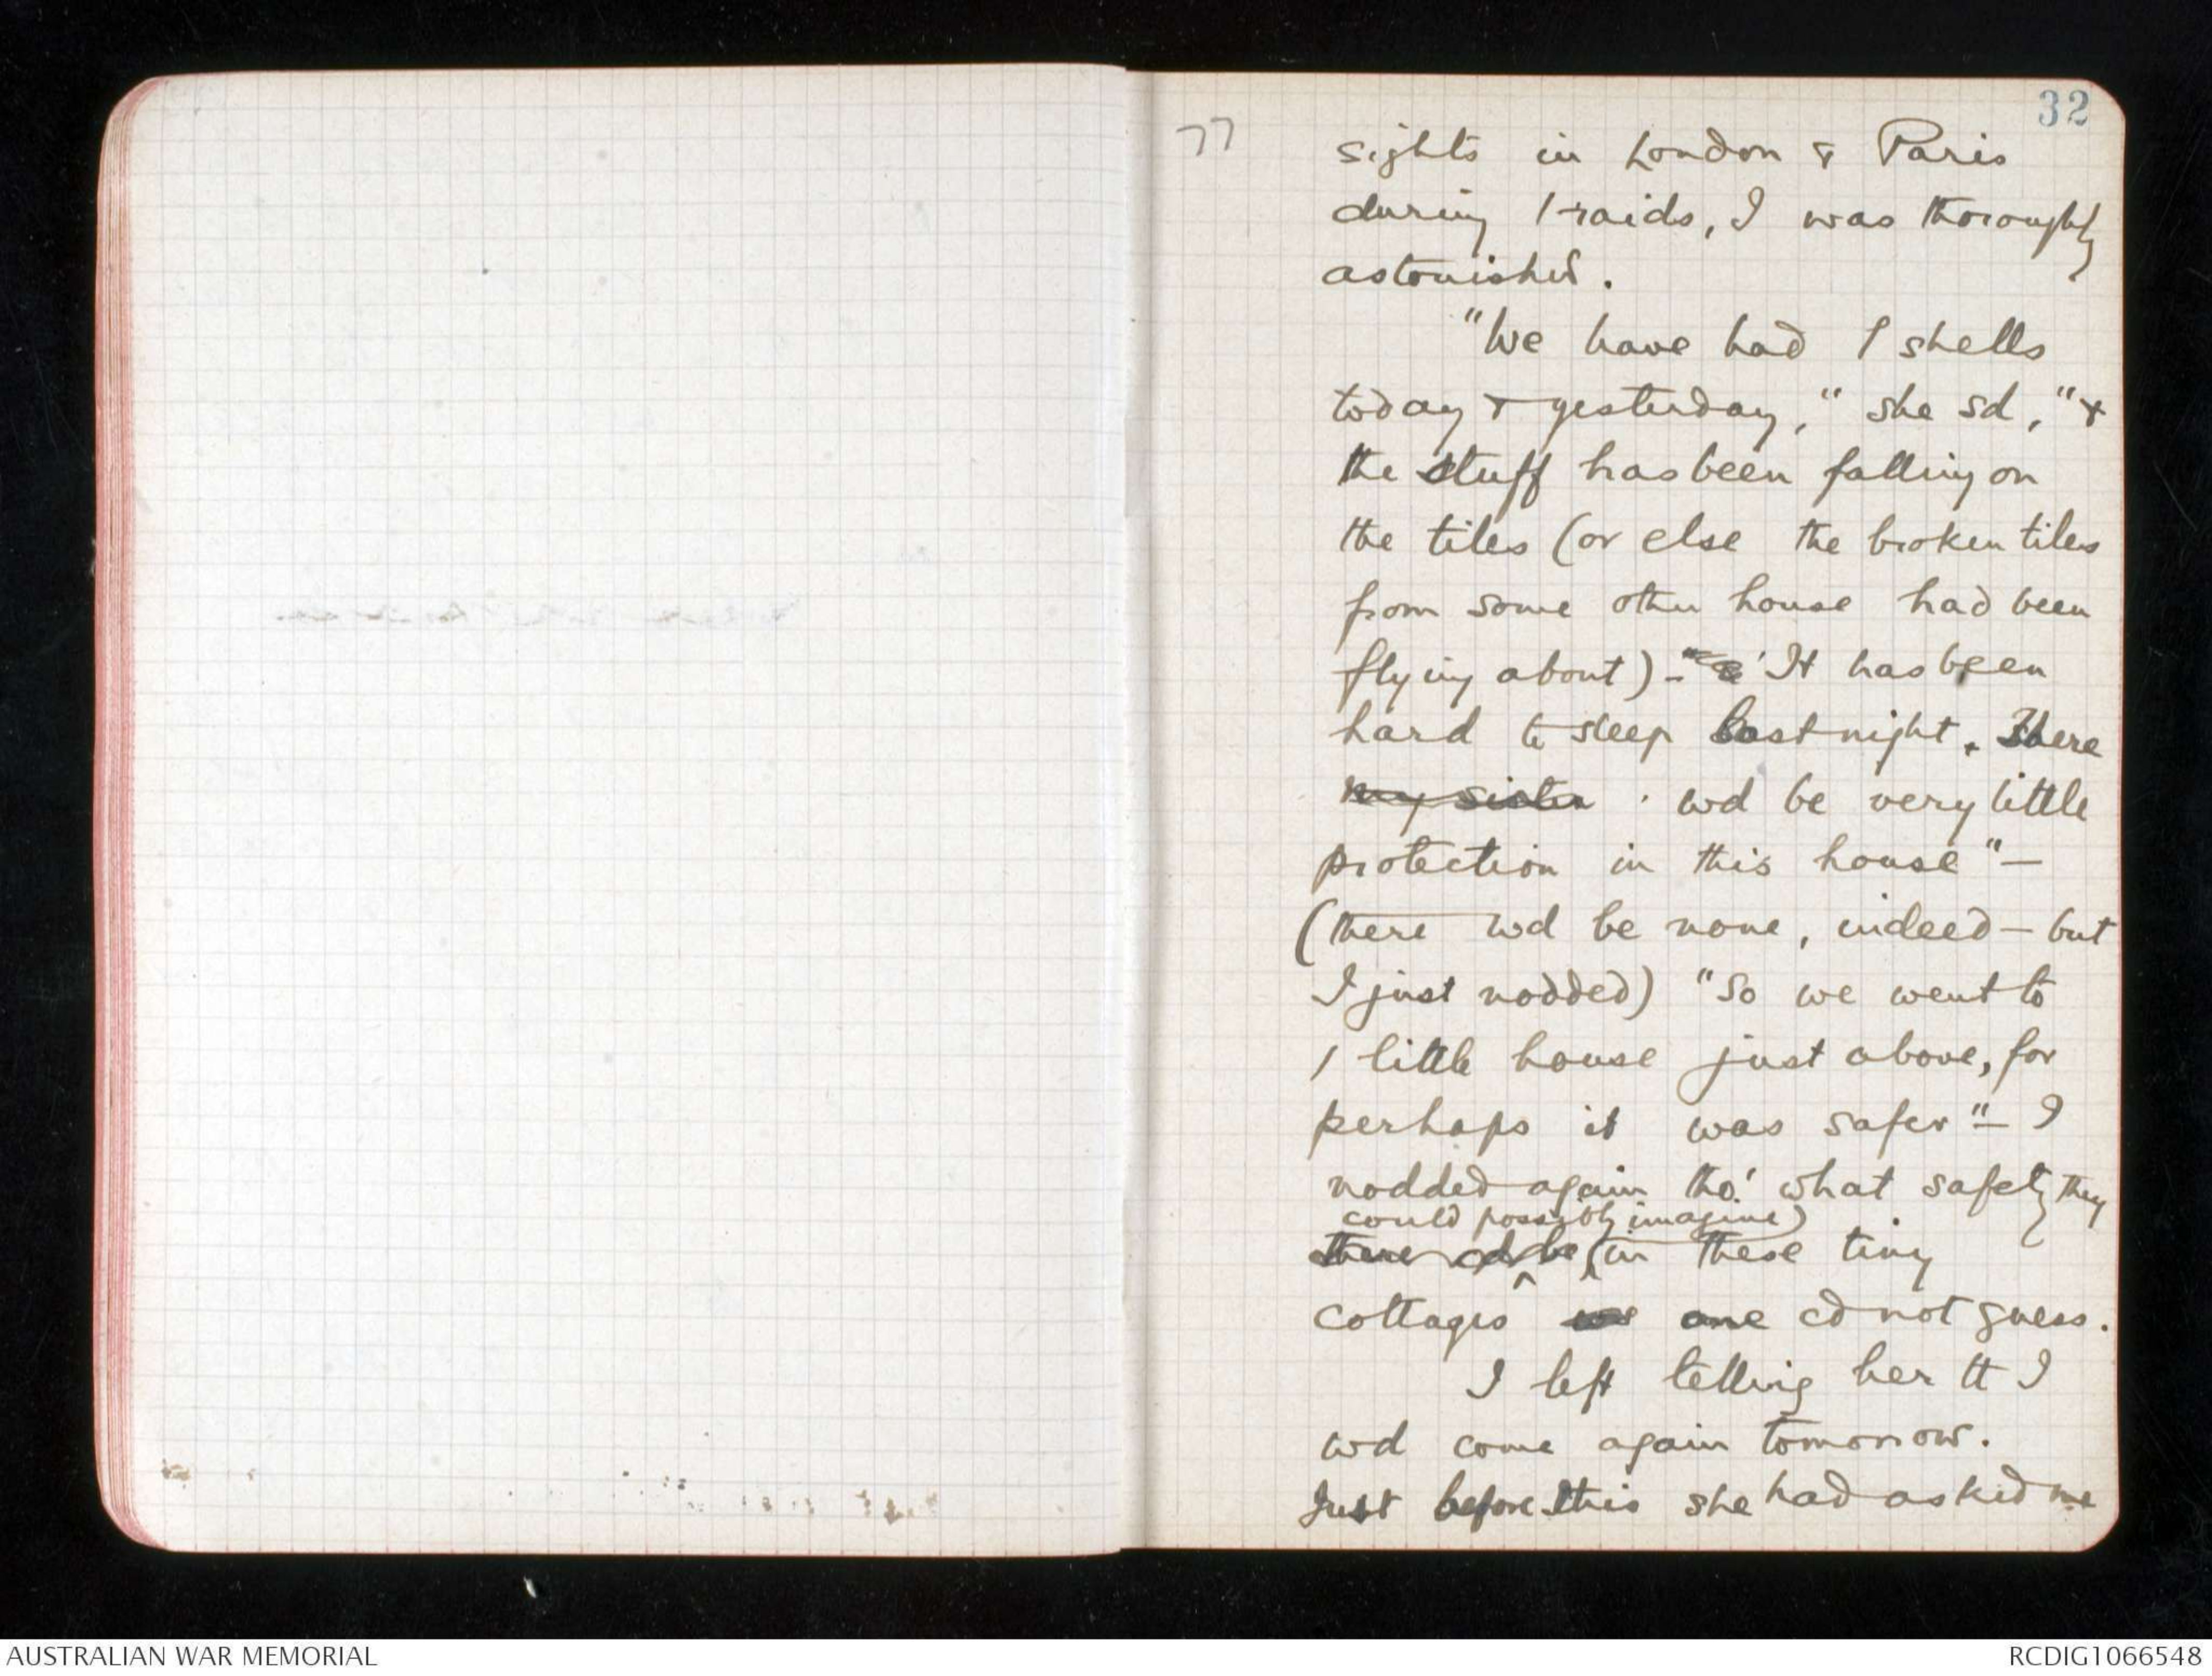 32
77
sights in London & Paris
during / raids, I was thoroughly
astonished.
"We have had / shells
today & yesterday," she sd, "&
the stuff has been falling on
the tiles (or else the broken tiles
from some other house had been
flying about) - 'It has been
hard to sleep last night. There
my sister wd be very little
protection in this house" -
(there wd be none, indeed - but
I just nodded) "So we went to
/ little house just above, for
perhaps it was safer" - I
nodded again tho' what safety they
could possibly imagine)
there cd be (in these tiny
cottages one cd not guess.
I left telling her tt I
wd come again tomorrow.
Just before this she had asked me
AUSTRALIAN WAR MEMORIAL
RCDIG1066548